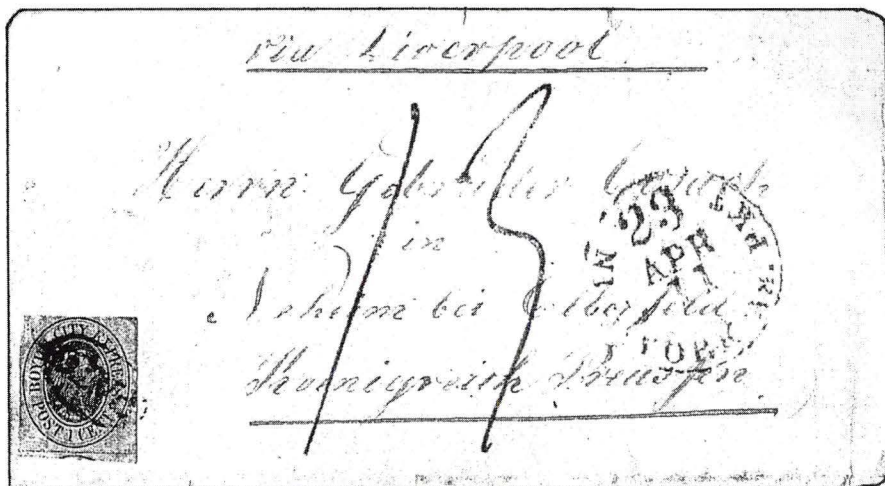 via Liverpool
13
Herrn Gebrüder
in
bei Elberfeld
Koenigreich Preussen
23
APR
11
N. YORK
PKT
BOYD'S CITY EXPRESS
POST 1 CENT